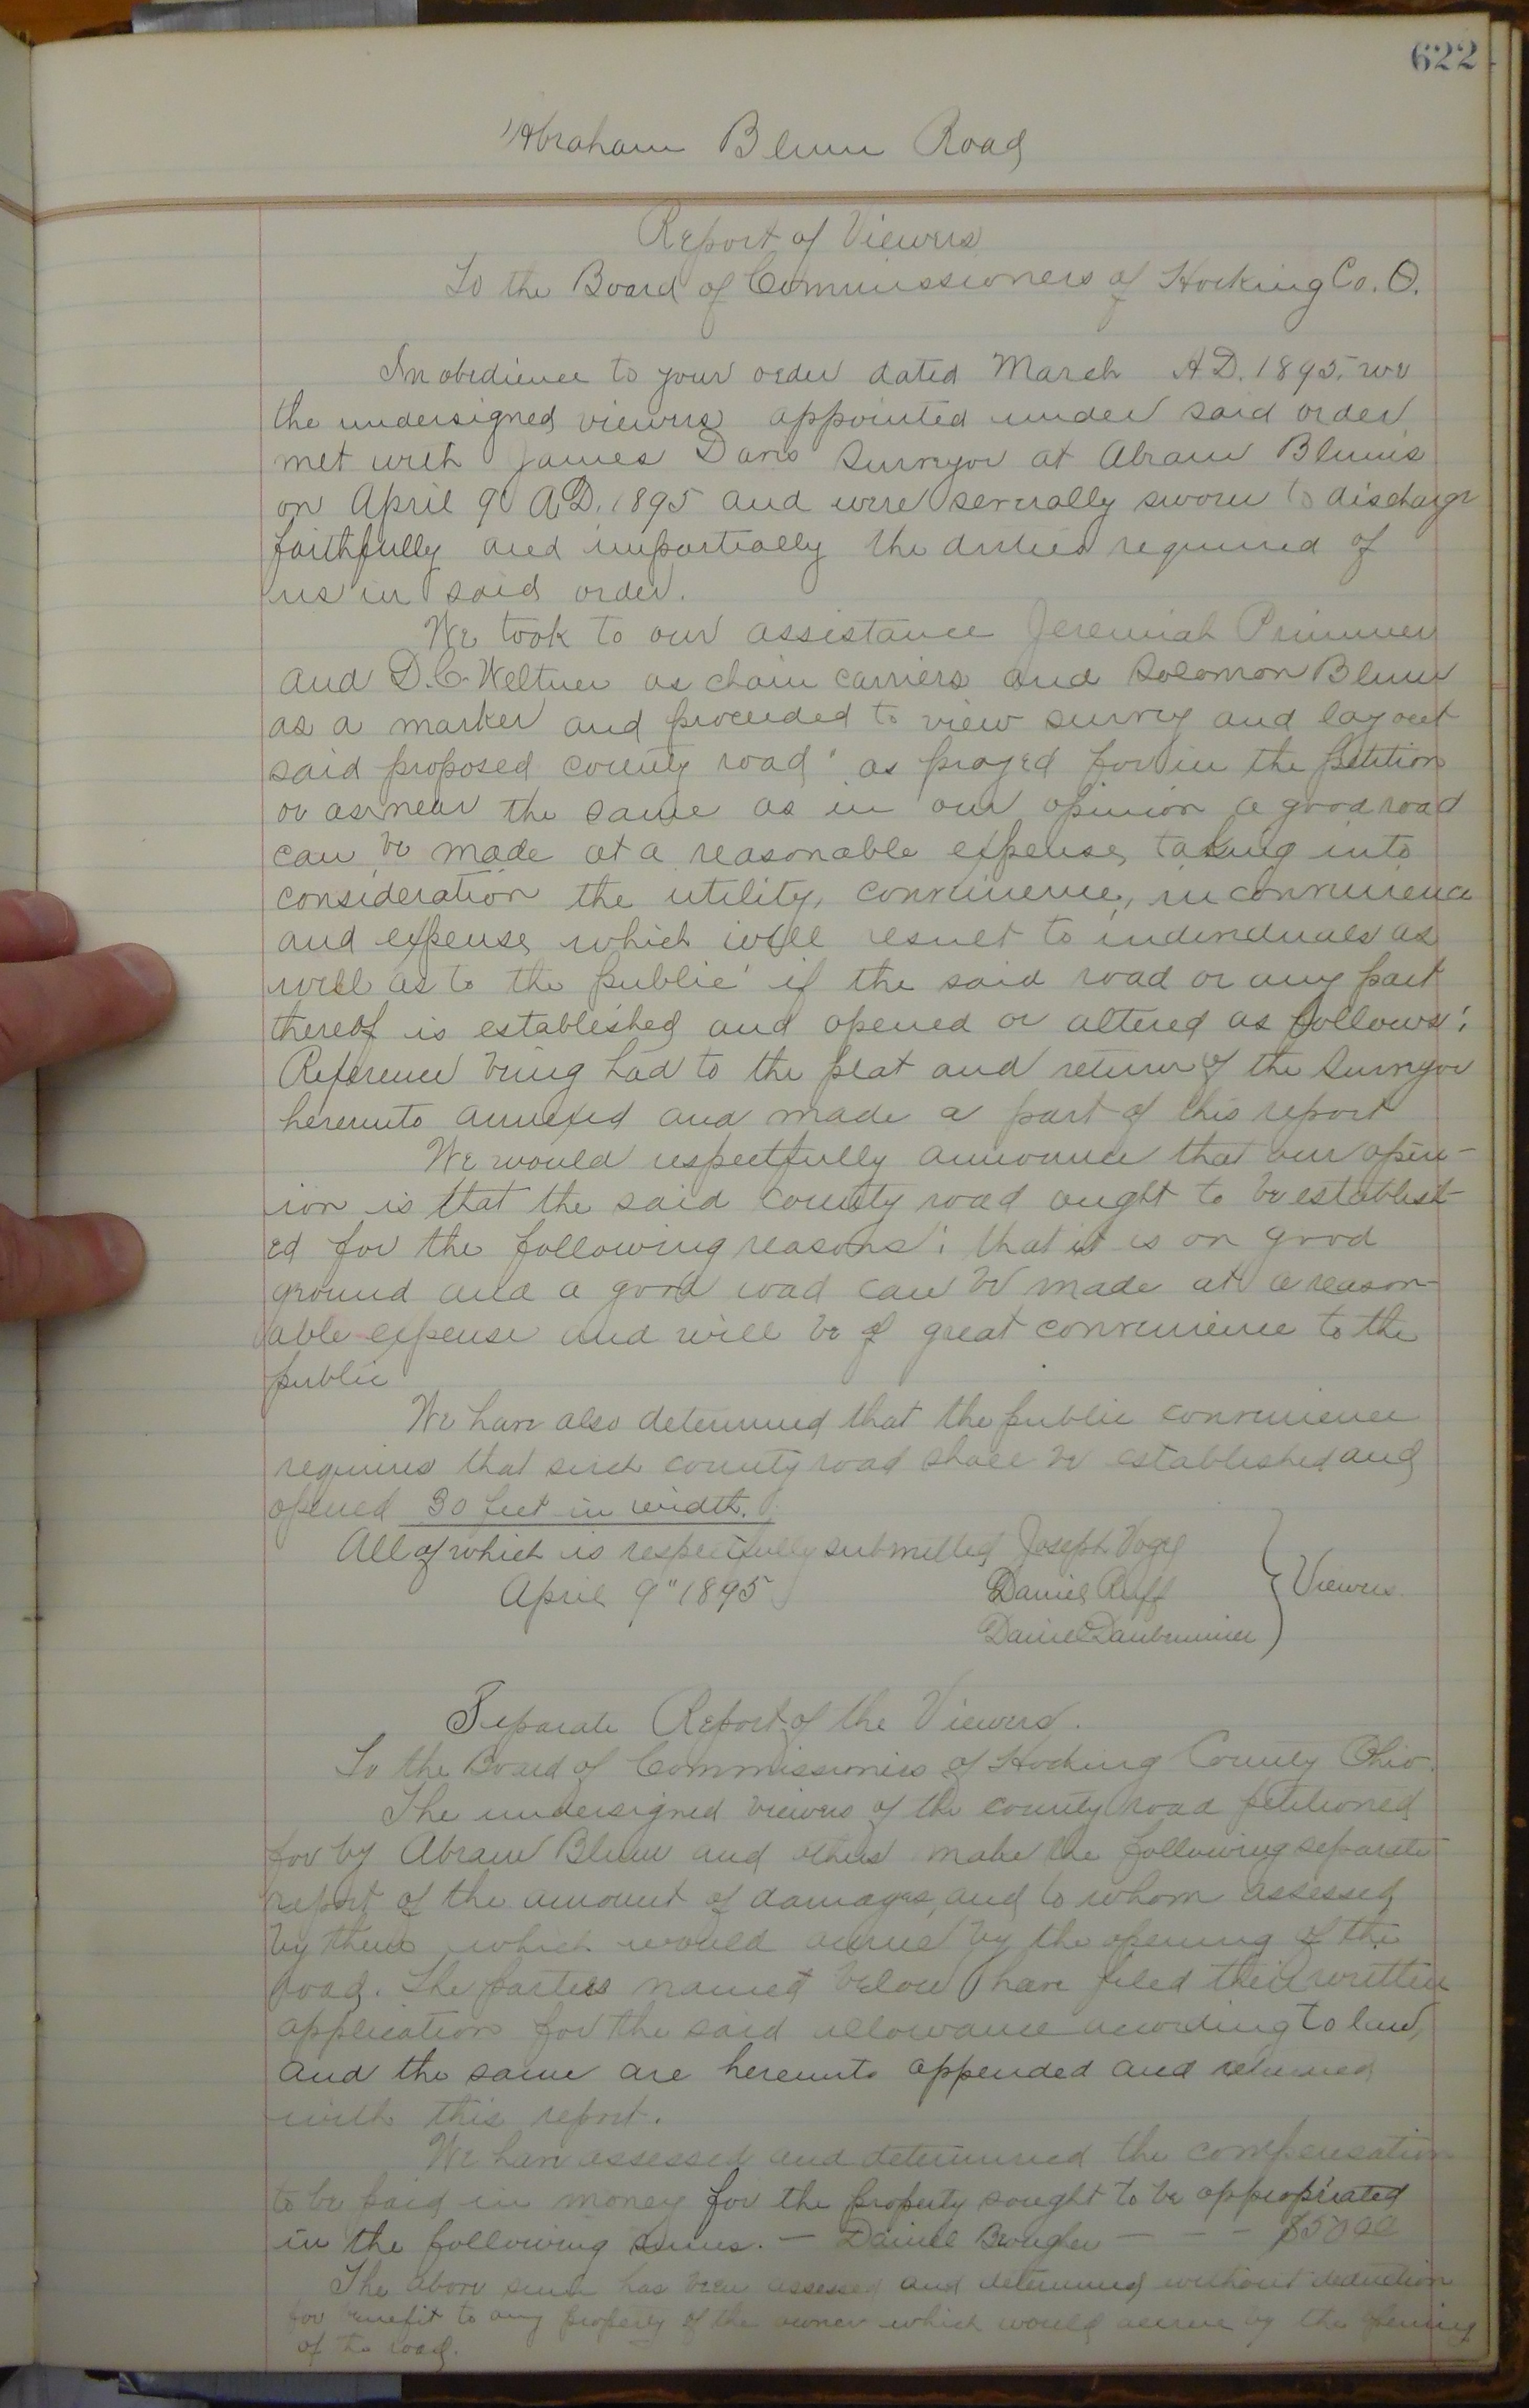 622
Abraham Blum Road
Report of Viewers
To the Board of Commissioners of Hocking Co. O.
In obedience to your order dated March A.D. 1895, we
the undersigned viewers appointed under said order
met with James Davis Surveyor at Abram Blum's
on April 9" A.D. 1895 and were severally sworn to discharge
faithfully and impartially the duties required of
us in said order.
We took to our assistance Jeremiah Primmer
and D.C. Weltner as chain carriers and Solomon Blum
as a marker and proceeded to view survey and lay out
said proposed county road as prayed for in the petition
or as near the same as in our opinion a good road
can be made at a reasonable expense, taking into
consideration the utility, convenience, inconvenience
and expense, which will result to individuals as
well as to the public if the said road or any part
thereof is established and opened or altered as follows:
Reference being had to the plat and return of the Surveyor
hereunto annexed and made a part of this report
We would respectfully announce that our opin-
ion is that the said county road ought to be establish-
ed for the following reasons: that it is on good
ground and a good road can be made at a reason-
able expense and will be of great convenience to the
public
We have also determined that the public convenience
requires that such county road shall be established and
opened 30 feet in width.
All of which is respectfully submitted Joseph Vogel
April 9" 1895 Daniel Ruff } Viewers.
Daniel Daubenmier
Separate Report of the Viewers.
To the Board of Commissioners of Hocking County Ohio.
The undersigned viewers of the county road petitioned
for by Abram Blum and others make the following separate
report of the amount of damages, and to whom assessed
by them which would accrue by the opening of the
road. The parties named below have filed their written
application for the said allowance according to law,
and the same are hereunto appended and returned
with this report.
We have assessed and determined the compensation
to be paid in money for the property sought to be appropriated
in the following sums. - Daniel Bougher - - - $50 00
The above sum has been assessed and determined without deduction
for benefit to any property of the owner which would accrue by the opening
of the road.